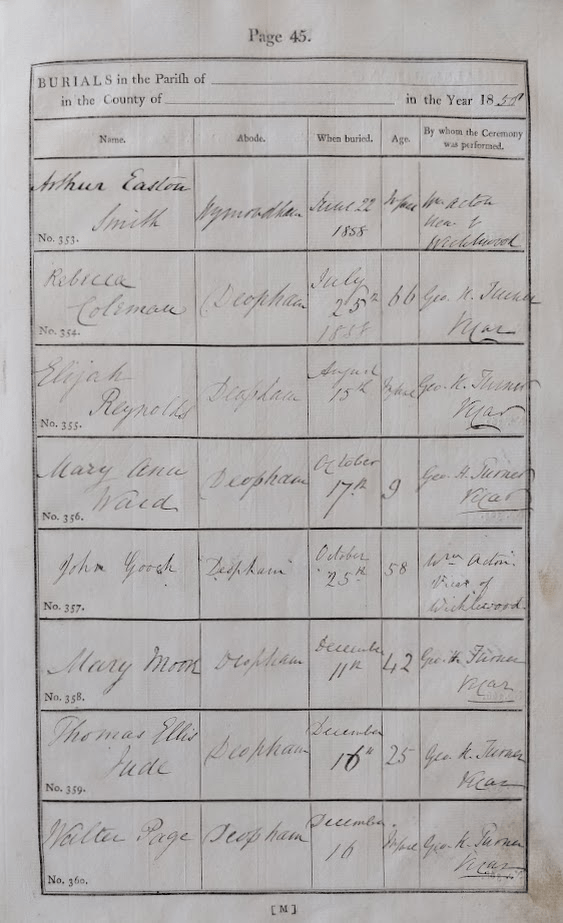 Page 45.
BURIALS in the Parish of
in the County of in the Year 1858
Name. Abode. When buried. Age. By whom the Ceremony was performed.
Arthur Easton
Smith
No. 353.
Wymondham
June 22
1858
Infant
Wm Acton
of
Wicklewood
Rebecca
Coleman
No. 354.
Deopham
July
25th
1858
66
Geo. H. Turner
Vicar
Elijah
Reynolds
No. 355.
Deopham
August
15th
Infant
Geo. H. Turner
Vicar
Mary Ann
Ward
No. 356.
Deopham
October
17th
9
Geo. H. Turner
Vicar
John Gooch
No. 357.
Deopham
October
25th
58
Wm Acton
Vicar of
Wicklewood
Mary Moon
No. 358.
Deopham
December
11th
42
Geo. H. Turner
Vicar
Thomas Ellis
Jude
No. 359.
Deopham
December
16th
25
Geo. H. Turner
Vicar
Walter Page
No. 360.
Deopham
December
16
Infant
Geo. H. Turner
Vicar
[M]